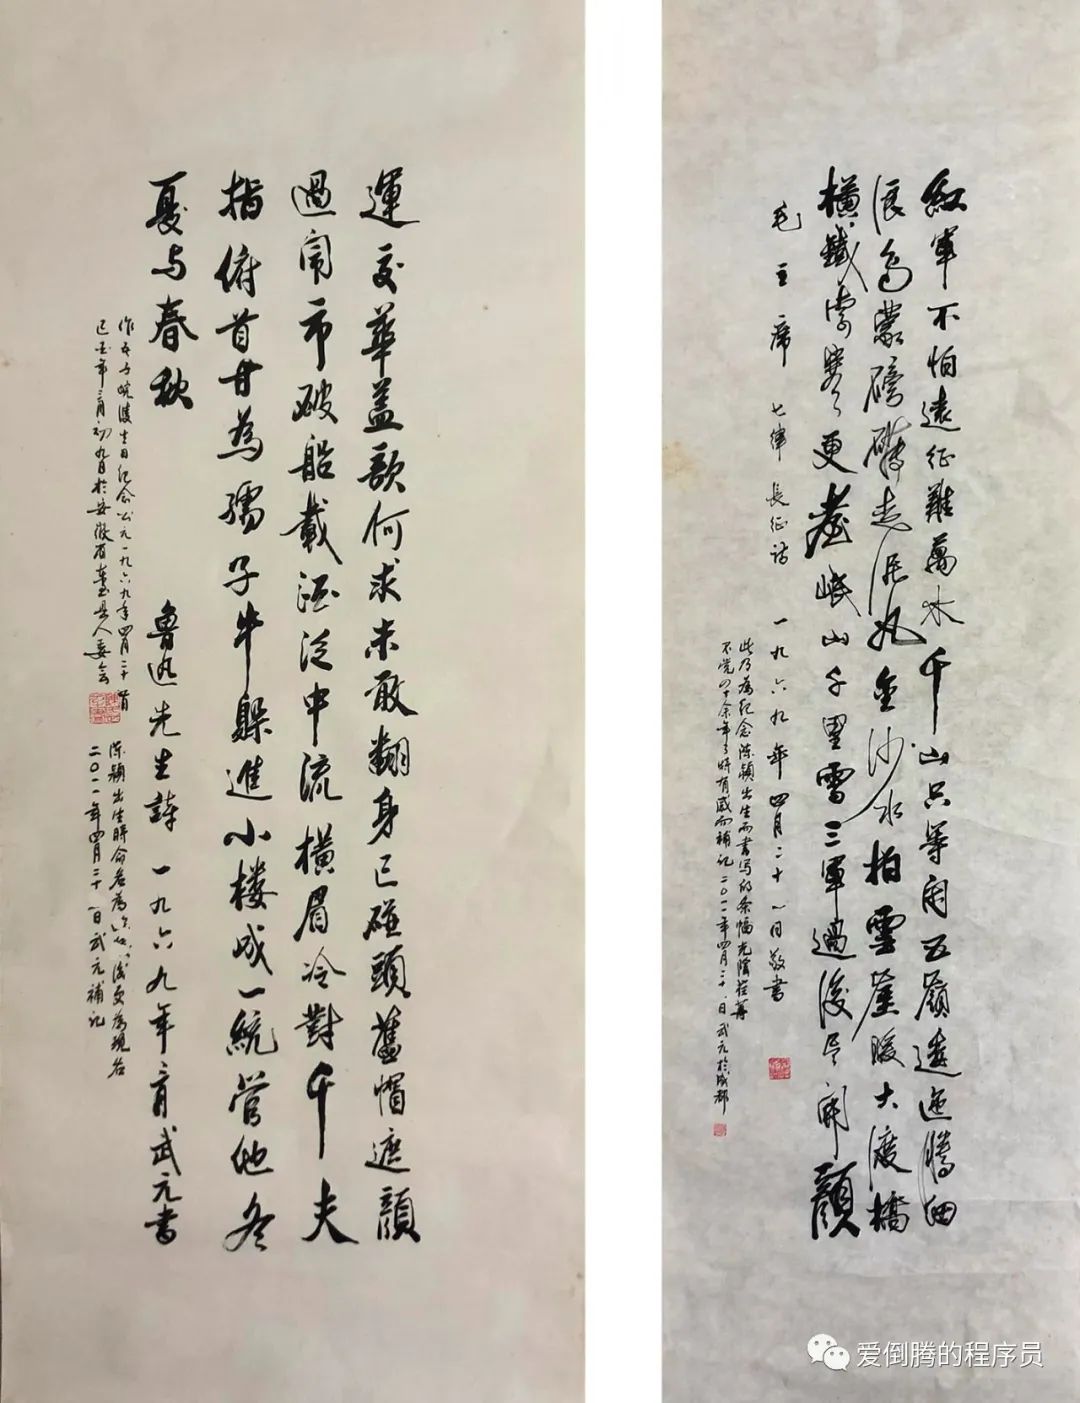 運交華蓋欲何求未敢翻身已碰頭舊帽遮顔
過闹市破船載酒泛中流橫眉冷對千夫
指俯首甘為孺子牛躲進小楼成一統管他冬
夏与春秋
魯迅先生詩 一九六九年三月武元書
作 生日纪念公元一九六九年四月二十
己酉年三月初九日於安徽省 县人委会
陈穎出生时命名為 後更為現名
二〇一一年四月二十一日武元補记
紅軍不怕遠征難萬水千山只等闲五嶺逶迤騰细
浪烏蒙磅礴走泥丸金沙水拍雲崖暖大渡橋
橫鐵索寒更喜岷山千里雪三軍過後尽開顔
毛主席 七律 長征詩 一九六九年四月二十一日敬書
此乃為纪念陈穎出生而書写的条幅光陰荏苒
不觉四十余年 时有感而補记二〇一一年四月二十一日武元於成都
爱倒腾的程序员